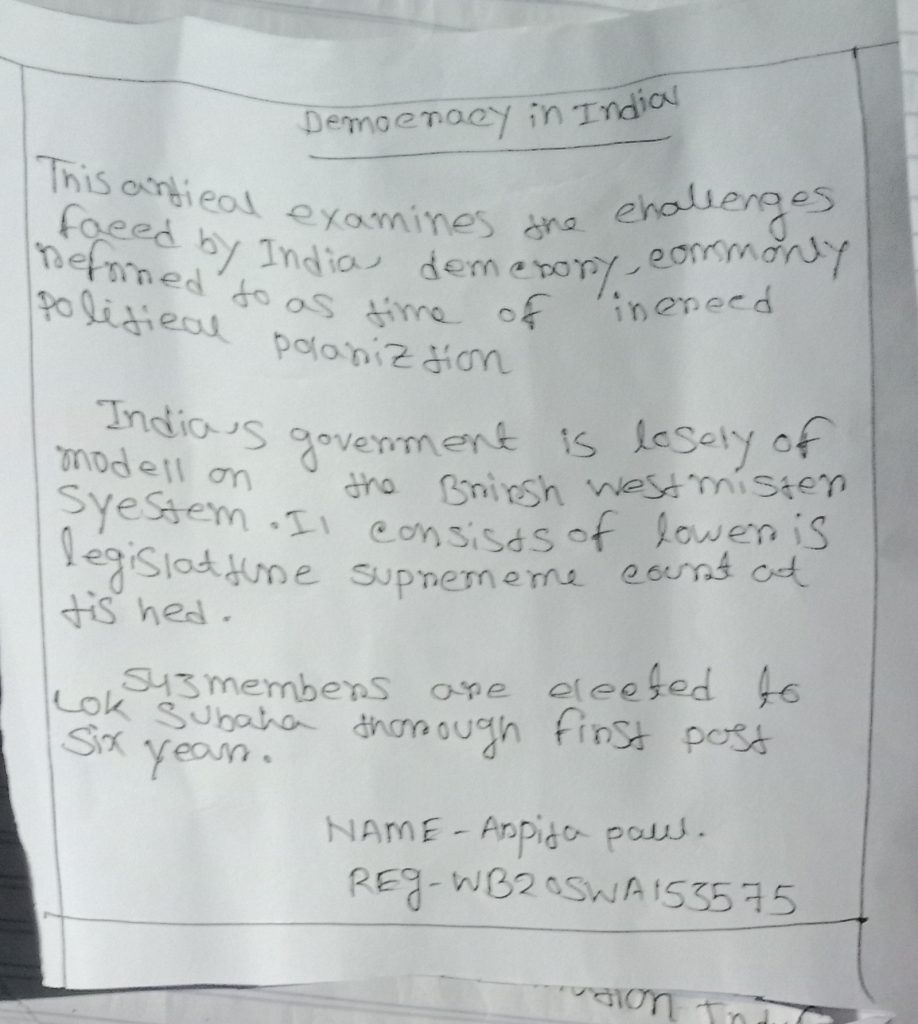 Democracy in India
This artical examines the challenges
faced by India, demcrory, commonly
Referned to as time of increed
political polariztion
India's government is losely of
modell on the British westmister
Syestem. It consists of lower is
legislatture suprememe court at
tis hed.
543 members are elected to
Lok Subaha thorough first post
Six year.
NAME - Arpita paul.
REg - WB20SWA153575